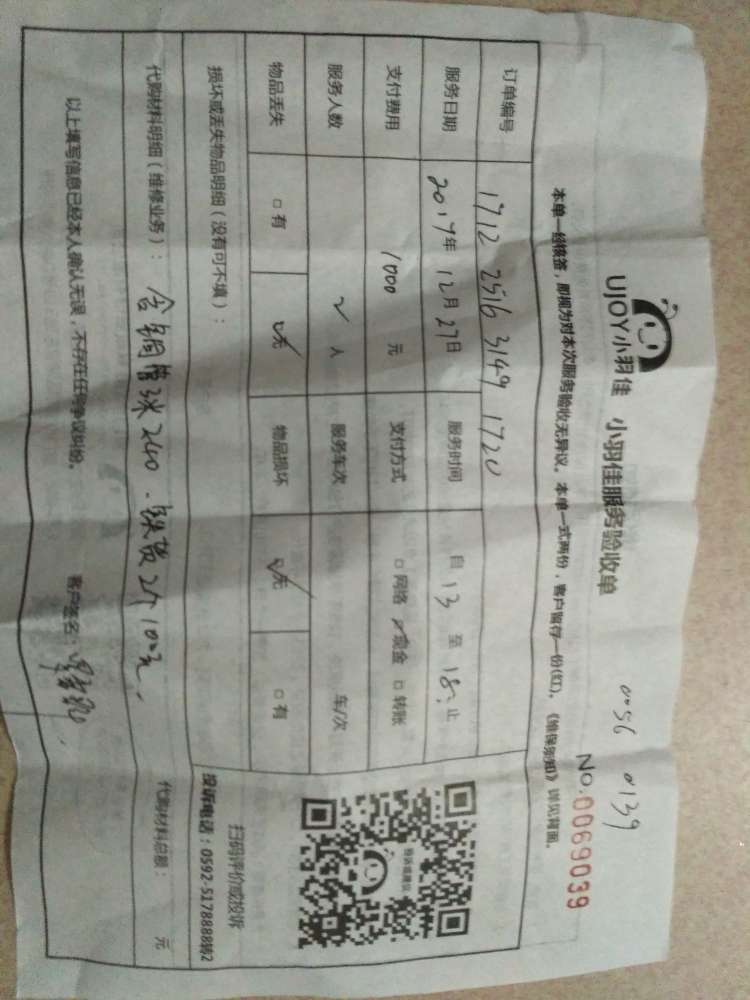 UJOY小羽佳 小羽佳服务验收单
0056 0139
NO.0069039
本单一经核签，即视为对本次服务验收无异议。本单一式两份，客户留存一份(红)。《维保须知》详见背面。
订单编号 1712 2516 3149 1720
服务日期 2017年 12月 27日 服务时间 自 13 至 18: 止
支付费用 1000 元 支付方式 □ 网络 ☑ 现金 □ 转账
服务人数 2 人 服务车次 车/次
物品丢失 □ 有 ☑ 无 物品损坏 ☑ 无 □ 有
损坏或丢失物品明细（没有可不填）：
投诉或建议
扫码评价或投诉
投诉电话：0592-5178888转2
代购材料明细（维修业务）： 含铜管3米240. 2个100元. 代购材料总额： 元
以上填写信息已经本人确认无误，不存在任何争议纠纷。 客户签名：